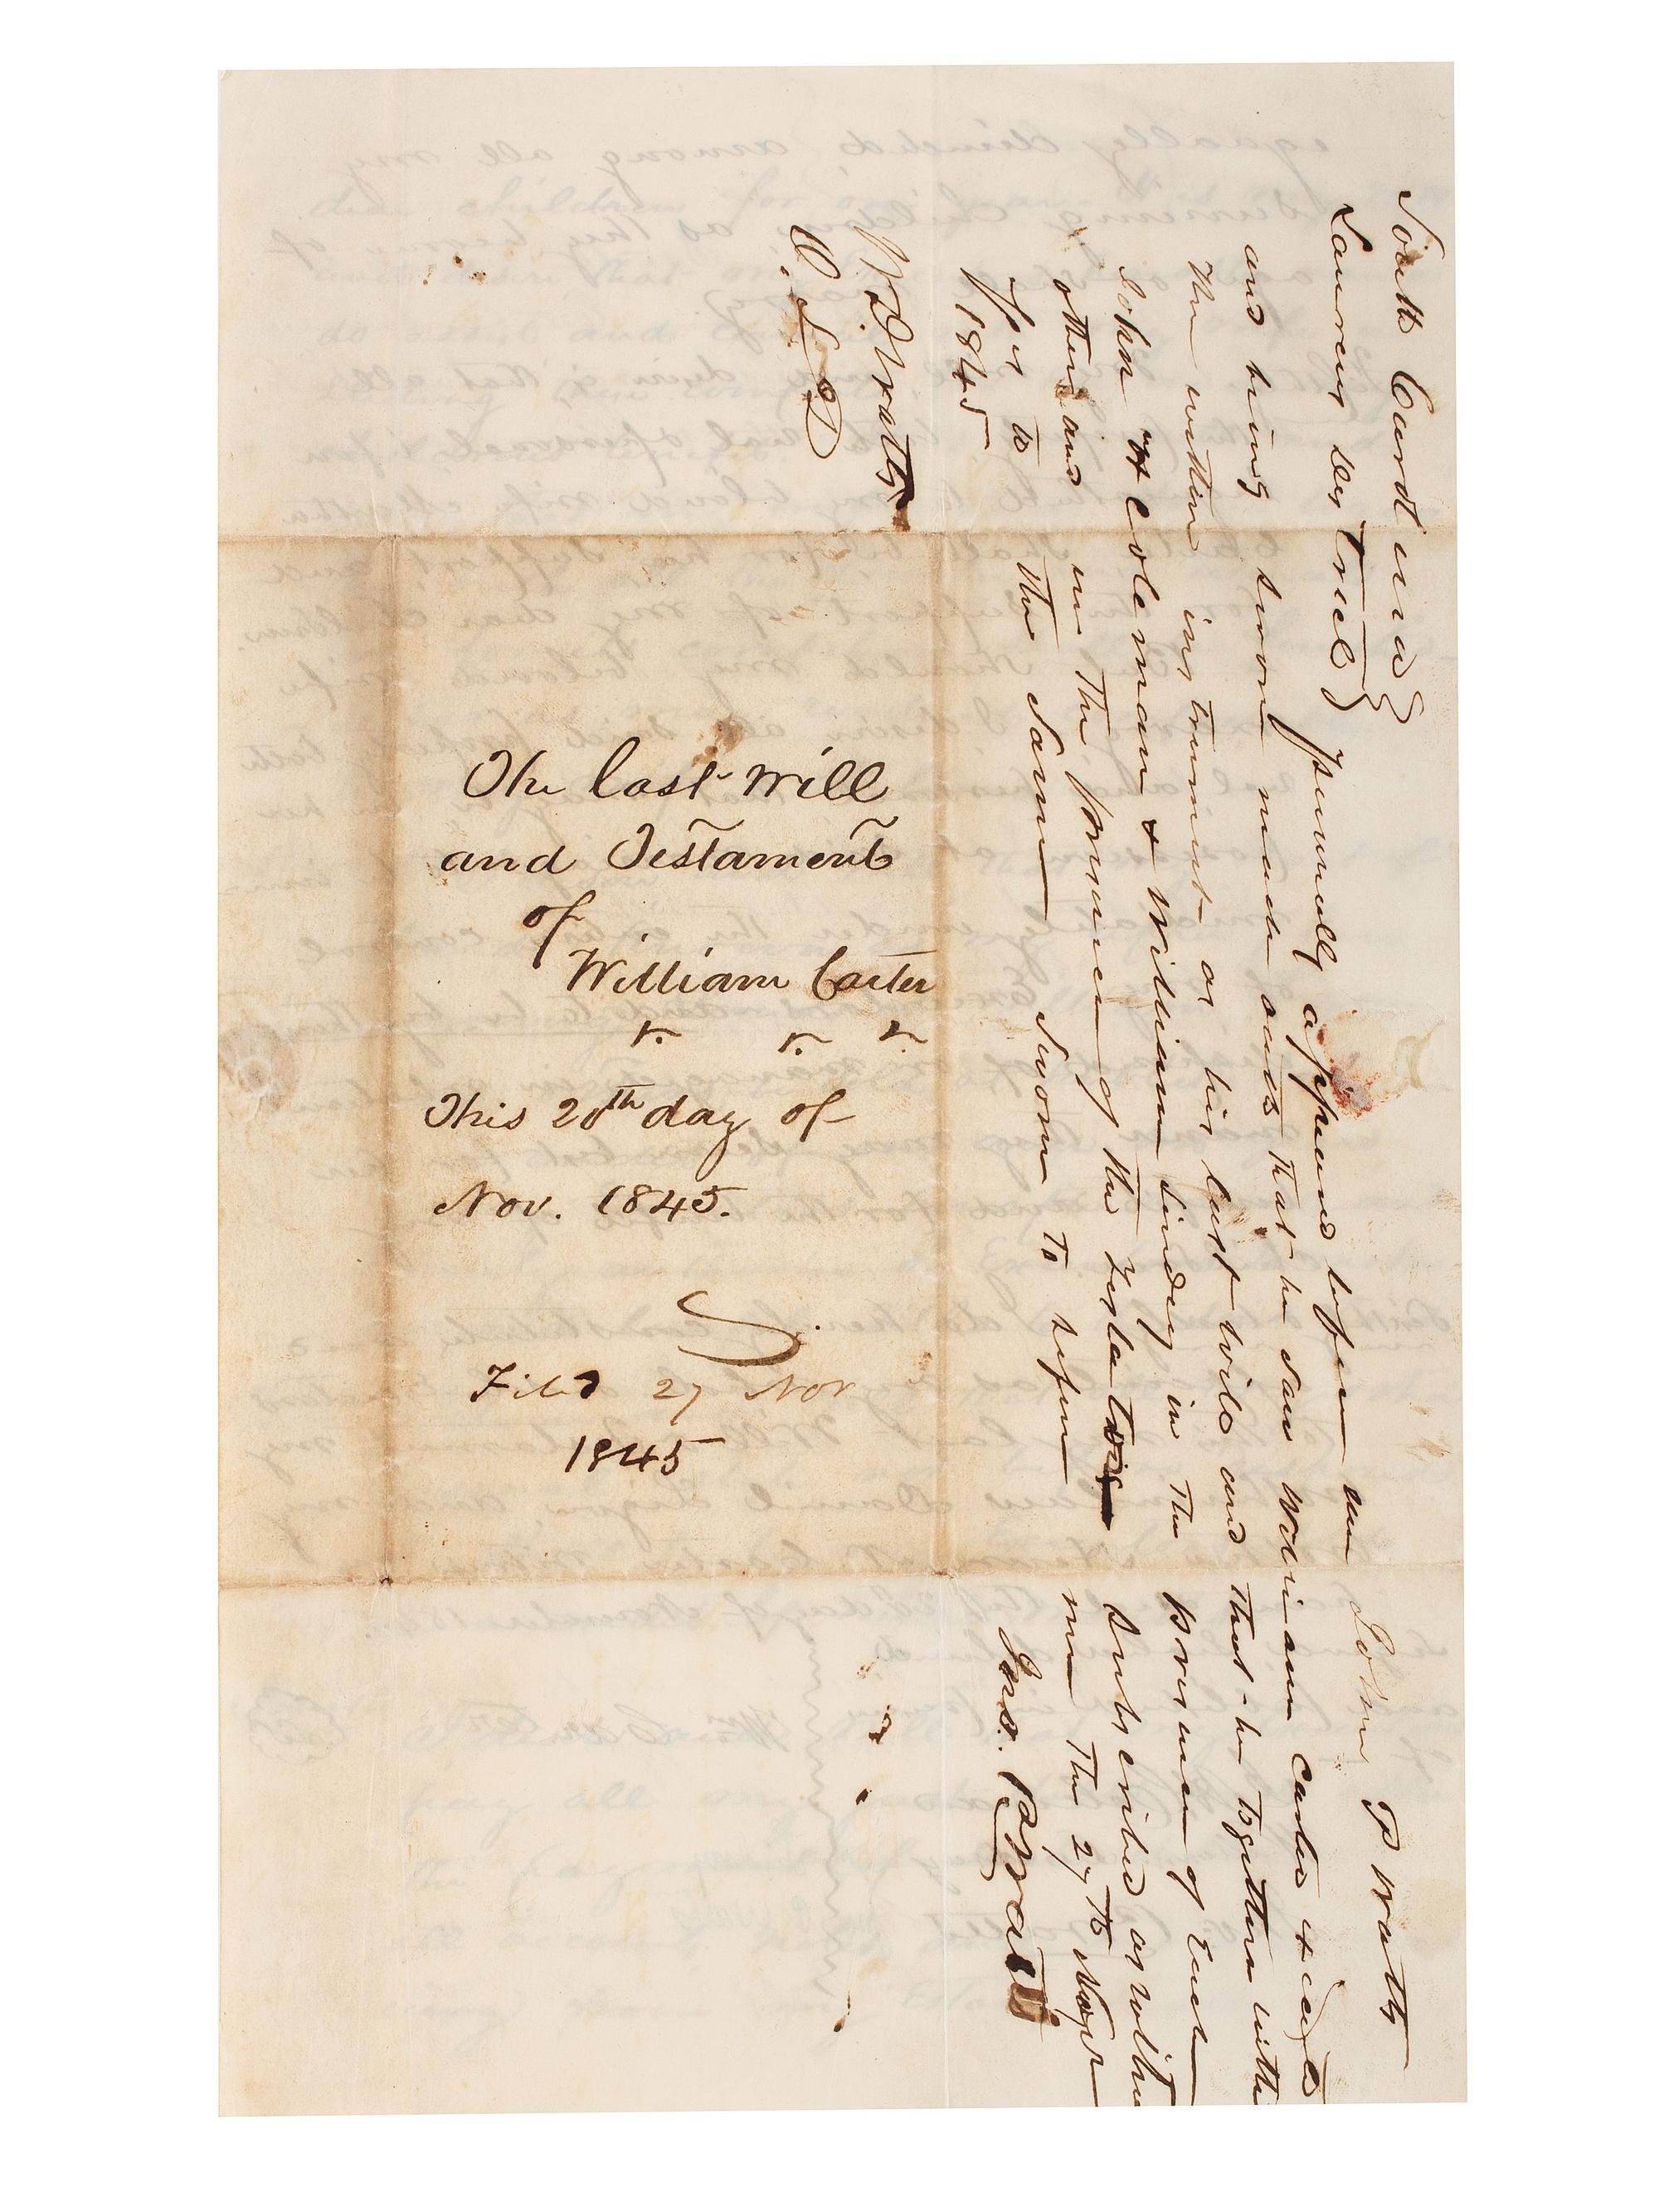 The last Will
and Testament
of
William Carter
This 20th day of
Nov. 1845.
Filed 27 Nov
1845
South Carolina
Laurens District personally appeared before me John P Watts
and being sworn made oath that he saw William Carter execute
the within instrument as his last will and that he together with
John Coleman & William Lindsey in the presence of Each
other and in the presence of the Testator subscribed as witness
to the same Sworn to before me The 27th Novr
1845
Jno. P. Watts
W D Watts
O L D